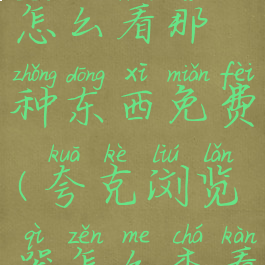 怎么看那
zhǒng dōng xī miǎn fèi
种东西免费
kuā kè liú lǎn
(夸克浏览
qì zěn me chá kàn
器怎么查看